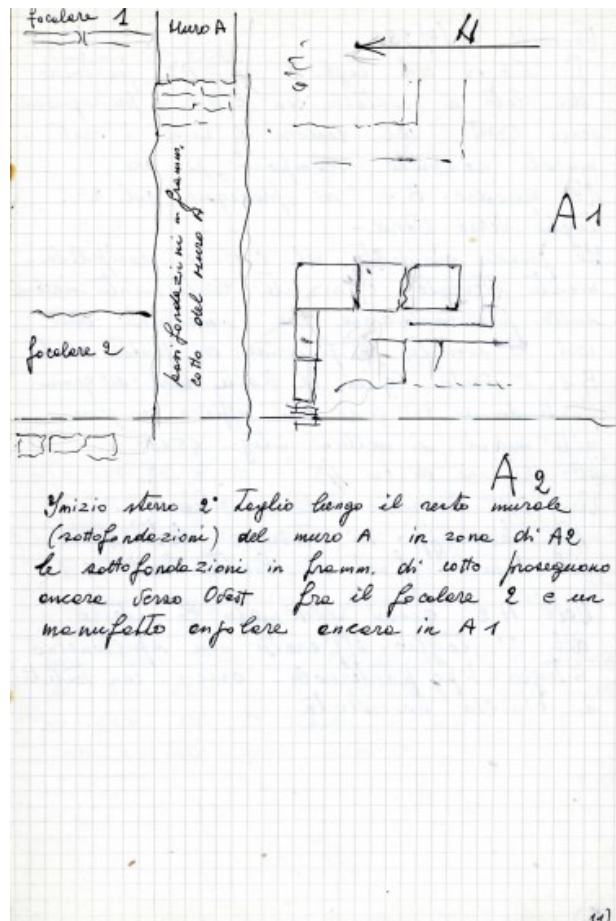 focolare 1
Muro A
N
A1
sottofondazioni in framm.
cotto del muro A
focolare 2
A2
Inizio sterro 2° Taglio lungo il resto murale
(sottofondazioni) del muro A in zona di A2
le sottofondazioni in framm. di cotto proseguono
ancora verso Ovest fra il focolare 2 e un
manufatto angolare ancora in A1